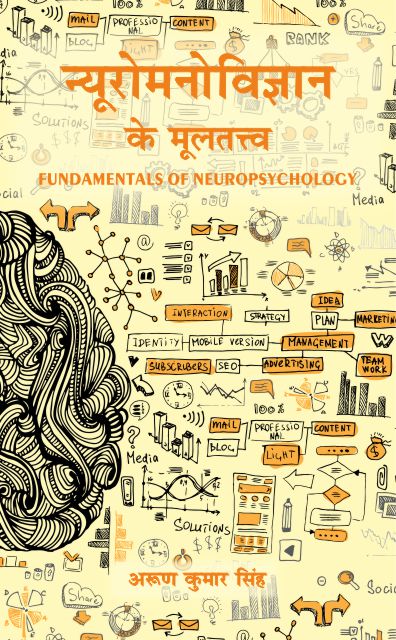 MAIL
PROFESSIO
NAL
CONTENT
BLOG
LIGHT
Share
RANK
Media
न्यूरोमनोविज्ञान
SOLUTIONS
$$$
के मूलतत्त्व
FUNDAMENTALS OF NEUROPSYCHOLOGY
Media
@
IDEA
INTERACTION
STRATEGY
PLAN
MARKETING
IDENTITY
MOBILE VERSION
MANAGEMENT
W
SUBSCRIBERS
SEO
ADVERTISING
TEAM
WORK
100%
MAIL
PROFESSIO
NAL
CONTENT
BLOG
LIGHT
?
Media
SOLUTIONS
$$$
अरूण कुमार सिंह
Share
Social
100%